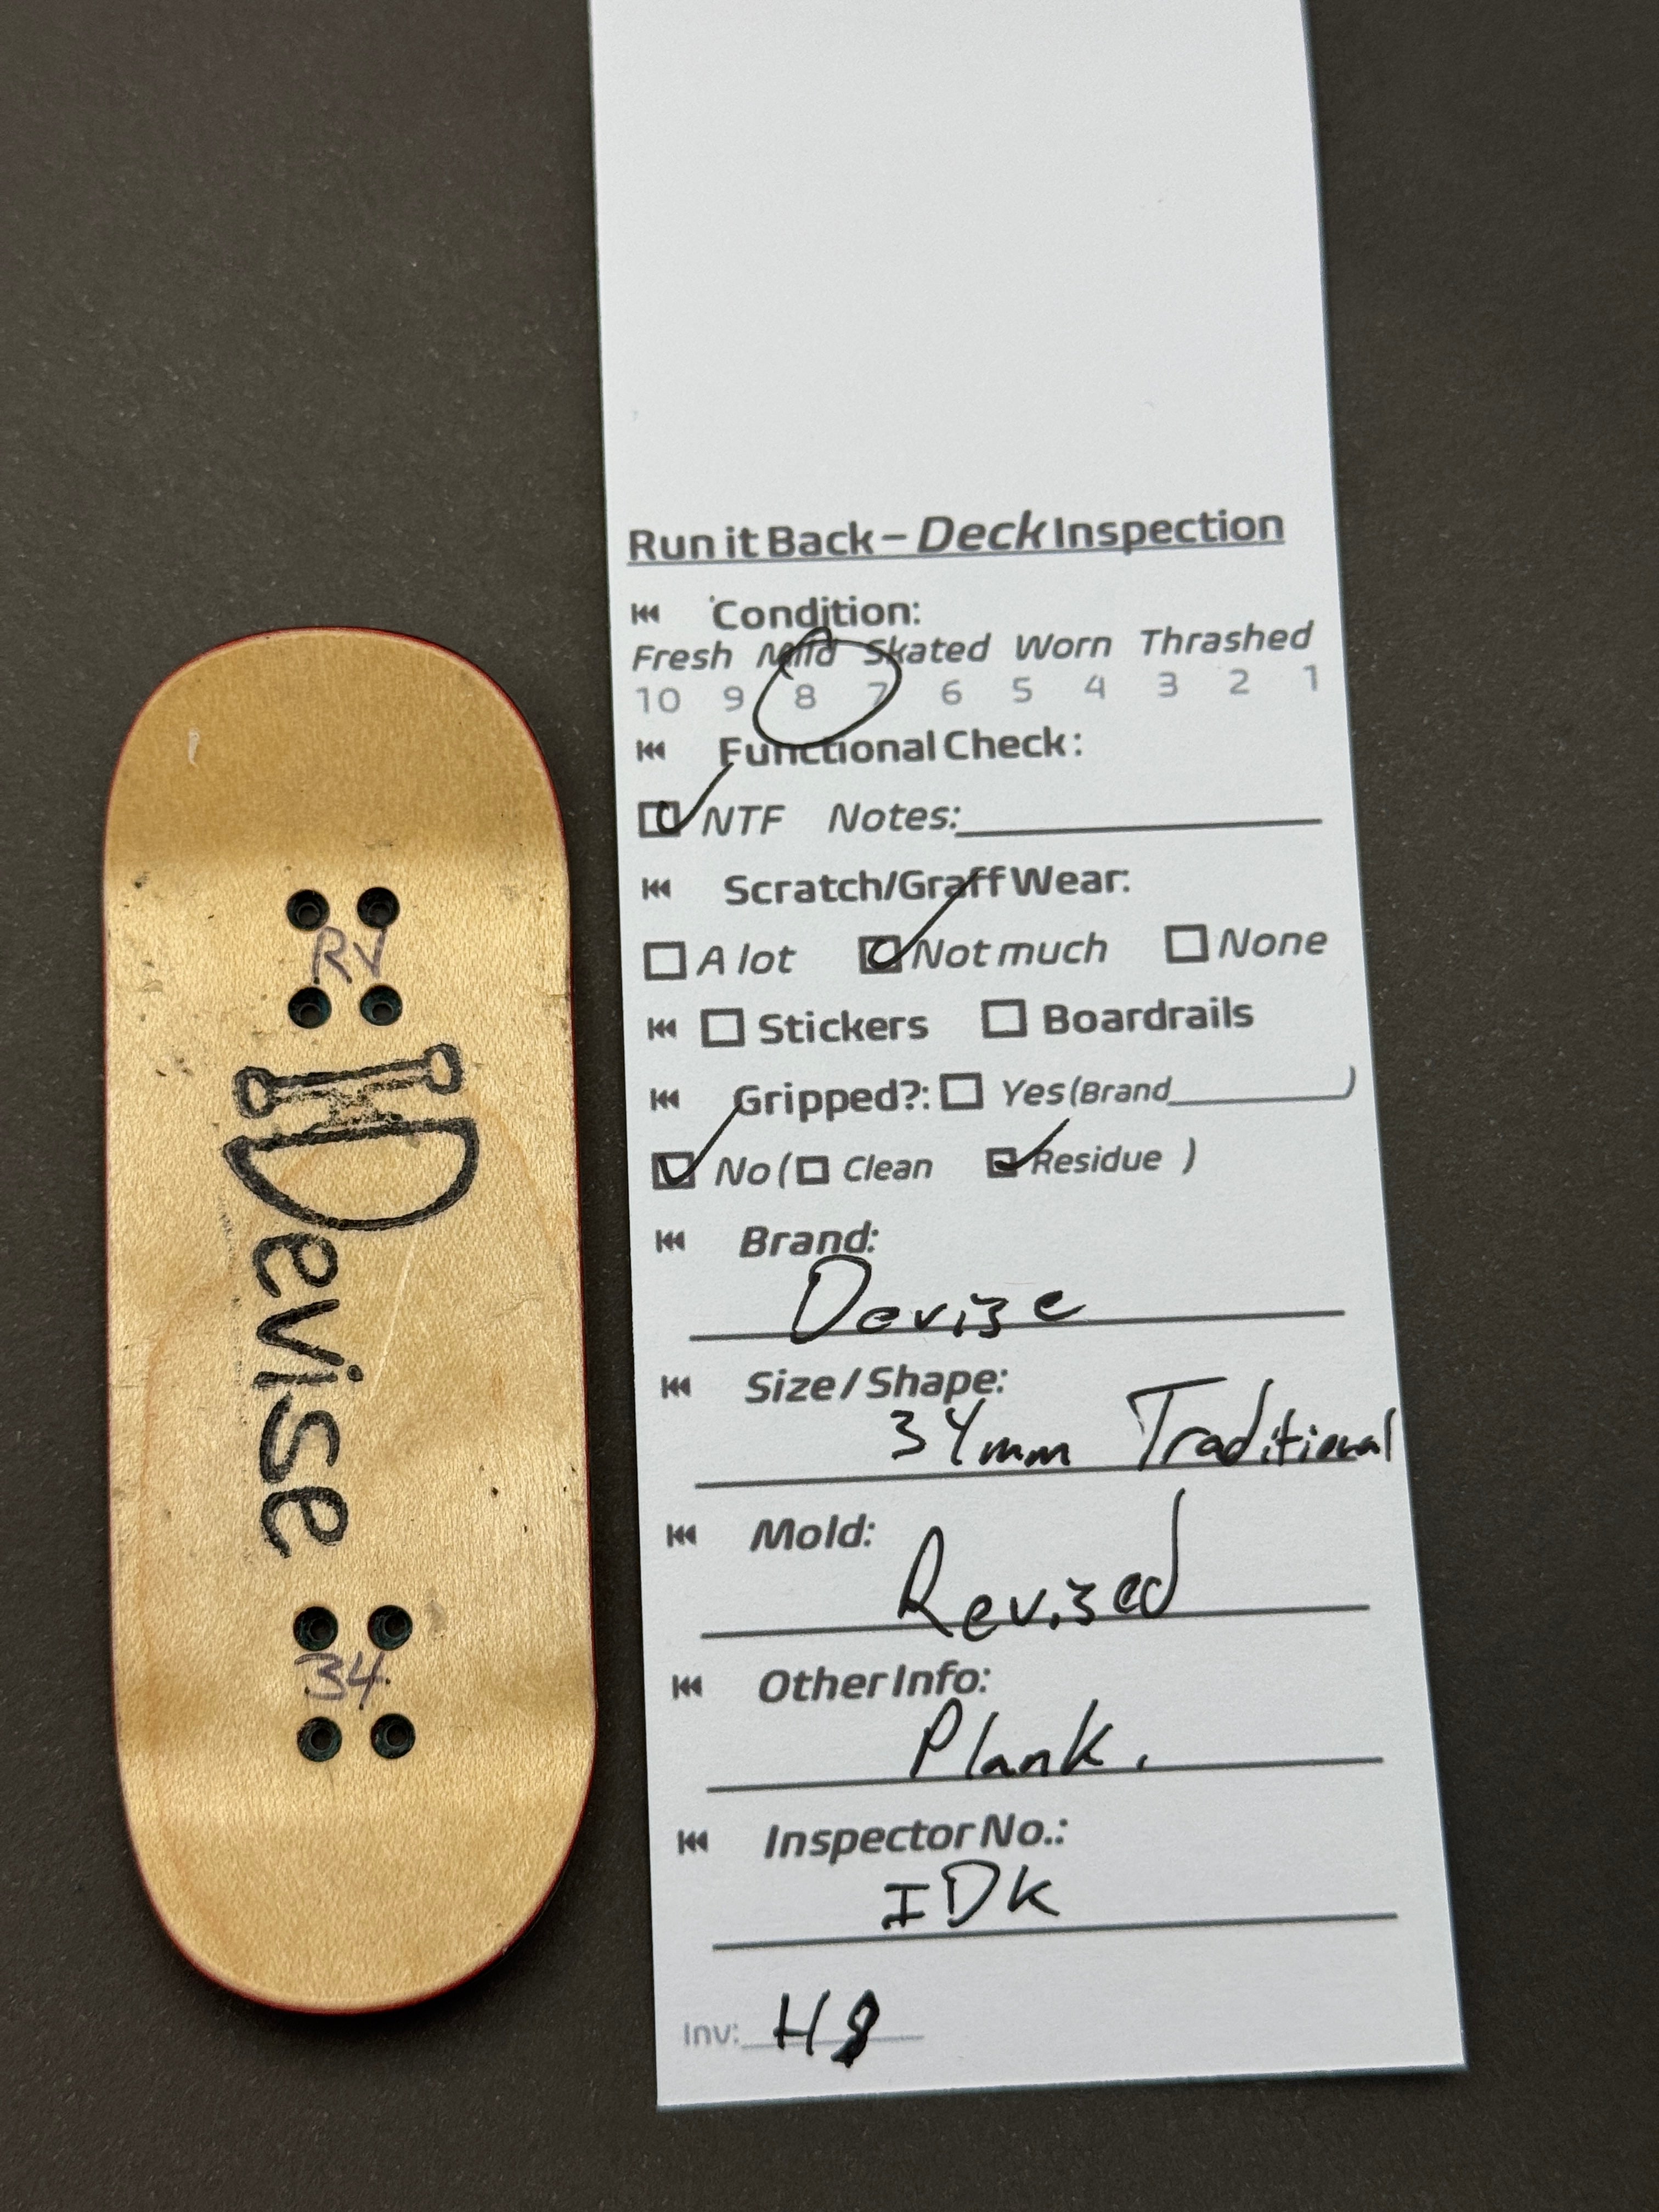 RV
Devise
34
Run it Back – Deck Inspection
Condition:
Fresh Mild Skated Worn Thrashed
10 9 8 7 6 5 4 3 2 1
Functional Check:
NTF Notes:
Scratch/Graff Wear:
A lot Not much None
Stickers Boardrails
Gripped?: Yes (Brand )
No ( Clean Residue )
Brand:
Devise
Size / Shape:
34mm Traditional
Mold:
Revised
Other Info:
Plank.
Inspector No.:
IDK
Inv: H8